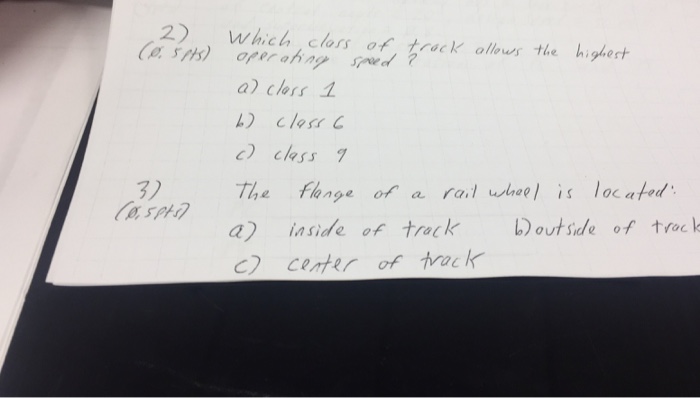 2) Which class of track allows the highest
(0.5pts) operating speed?
a) class 1
b) class 6
c) class 9
3) The flange of a rail wheel is located:
(0.5pts)
a) inside of track b) outside of track
c) center of track